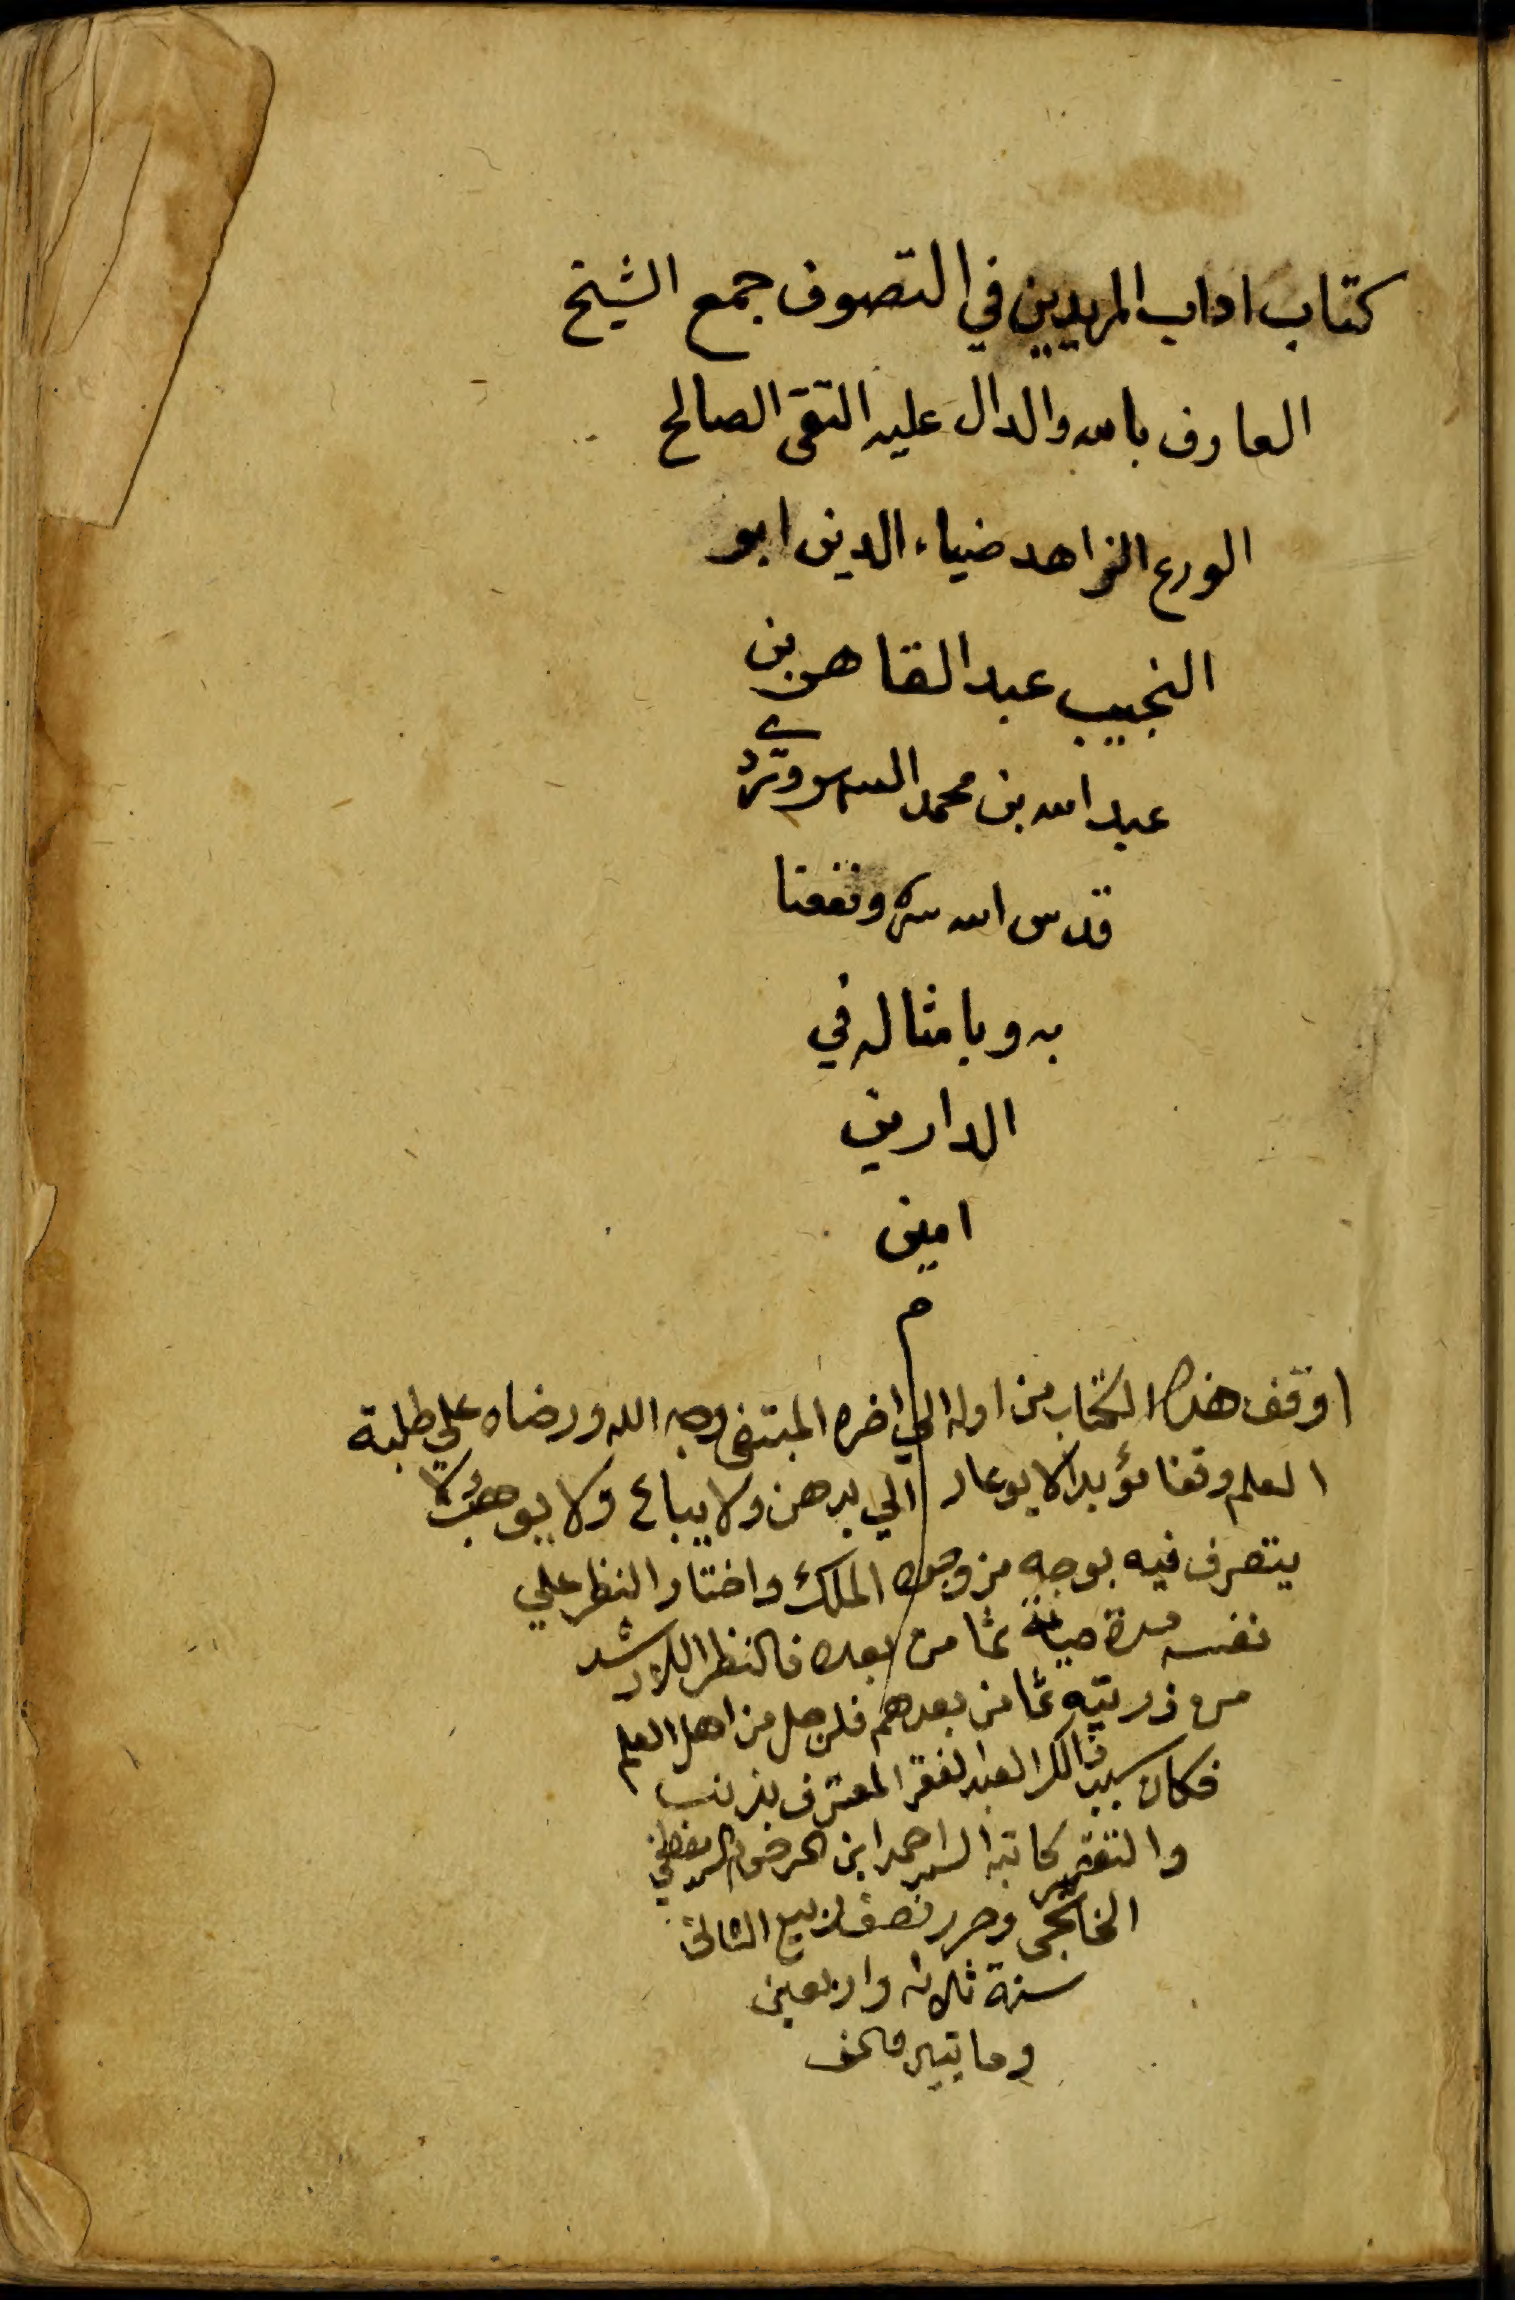 كتاب اداب المريدين في التصوف جمع الشيخ
العارف بالله والدال عليه التقى الصالح
الورع الزاهد ضياء الدين ابو
النجيب عبد القاهر بن
عبد الله بن محمد السهروردي
قدس الله سره ونفعنا
به وبامثاله في
الدارين
امين
م
اوقف هذا الكتاب من اوله الي اخره المبتغى وجه الله ورضاه علي طلبة
العلم وقفا مؤبدا لا يوعار الي برهن ولا يباع ولا يوهب ولا
يتصرف فيه بوجه من وجوه الملك واختار النظر علي
نفسه مدة حياته ثما من بعده فالنظر للارشد
من ذريته ثما من بعدهم فلرجل من اهل العلم
فكان سبب ذالك العبد الفقر المعترف بذنب
والتقصير كاتبه السيد احمد ابن
وحرر نصف ربيع الثاني
سنة ثلاثه واربعين
وماتين والف